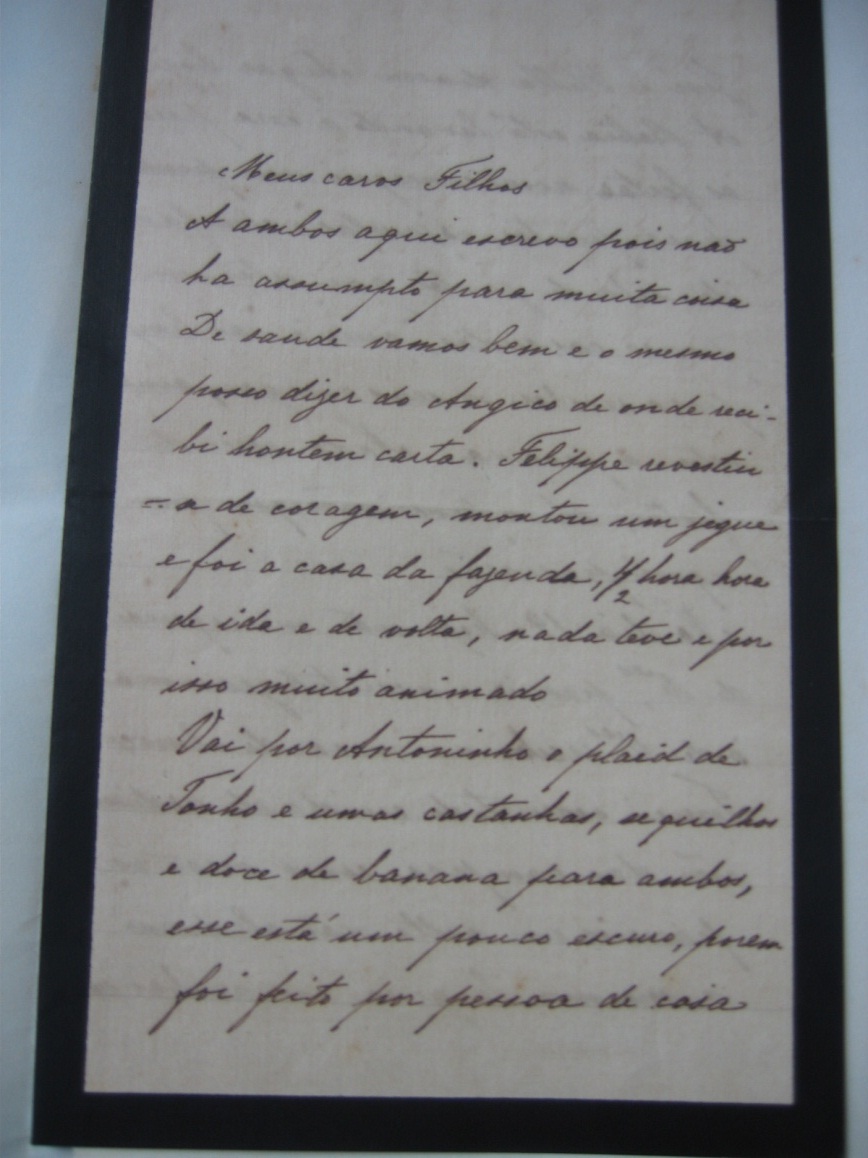 Meus caros Filhos
A ambos aqui escrevo pois não
ha assumpto para muita coisa
De saude vamos bem e o mesmo
posso dizer do Angico de onde rece-
bi hontem carta. Felippe revestiu
-se de coragem, montou um jegue
e foi a casa da fazenda, 1/2 hora hora
de ida e de volta, nada teve e por
isso muito animado
Vai por Antoninho o plaid de
Tonho e umas castanhas, sequilhos
e doce de banana para ambos,
esse está um pouco escuro, porem
foi feito por pessoa de casa